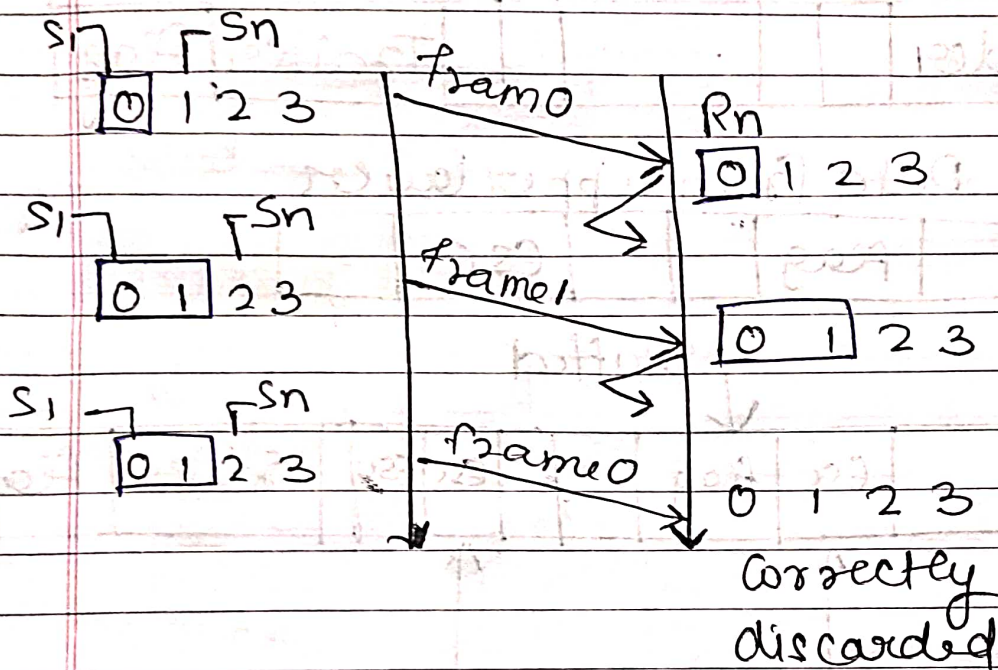 S1 Sn
0 1 2 3
fram0
Rn
0 1 2 3
S1 Sn
0 1 2 3
frame1
0 1 2 3
S1 Sn
0 1 2 3
frame0
0 1 2 3
Correctly
discarded